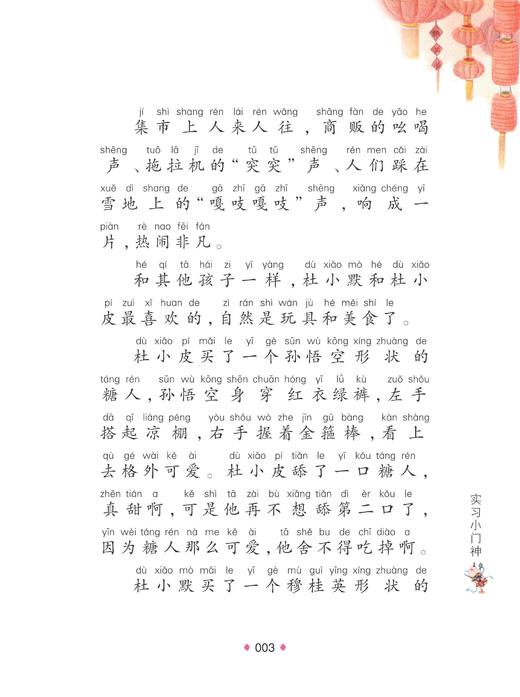 jí shì shang rén lái rén wǎng shāng fàn de yāo he
集市上人来人往，商贩的吆喝
shēng tuō lā jī de tū tū shēng rén men cǎi zài
声、拖拉机的“突突”声、人们踩在
xuě dì shang de gā zhī gā zhī shēng xiǎng chéng yī
雪地上的“嘎吱嘎吱”声，响成一
piàn rè nao fēi fán
片，热闹非凡。
hé qí tā hái zi yī yàng dù xiǎo mò hé dù xiǎo
和其他孩子一样，杜小默和杜小
pí zuì xǐ huan de zì rán shì wán jù hé měi shí le
皮最喜欢的，自然是玩具和美食了。
dù xiǎo pí mǎi le yī gè sūn wù kōng xíng zhuàng de
杜小皮买了一个孙悟空形状的
táng rén sūn wù kōng shēn chuān hóng yī lǜ kù zuǒ shǒu
糖人，孙悟空身穿红衣绿裤，左手
dā qǐ liáng péng yòu shǒu wò zhe jīn gū bàng kàn shàng
搭起凉棚，右手握着金箍棒，看上
qù gé wài kě ài dù xiǎo pí tiǎn le yī kǒu táng rén
去格外可爱。杜小皮舔了一口糖人，
zhēn tián a kě shì tā zài bù xiǎng tiǎn dì èr kǒu le
真甜啊，可是他再不想舔第二口了，
yīn wèi táng rén nà me kě ài tā shě bu de chī diào a
因为糖人那么可爱，他舍不得吃掉啊。
dù xiǎo mò mǎi le yī gè mù guì yīng xíng zhuàng de
杜小默买了一个穆桂英形状的
实习小门神
003